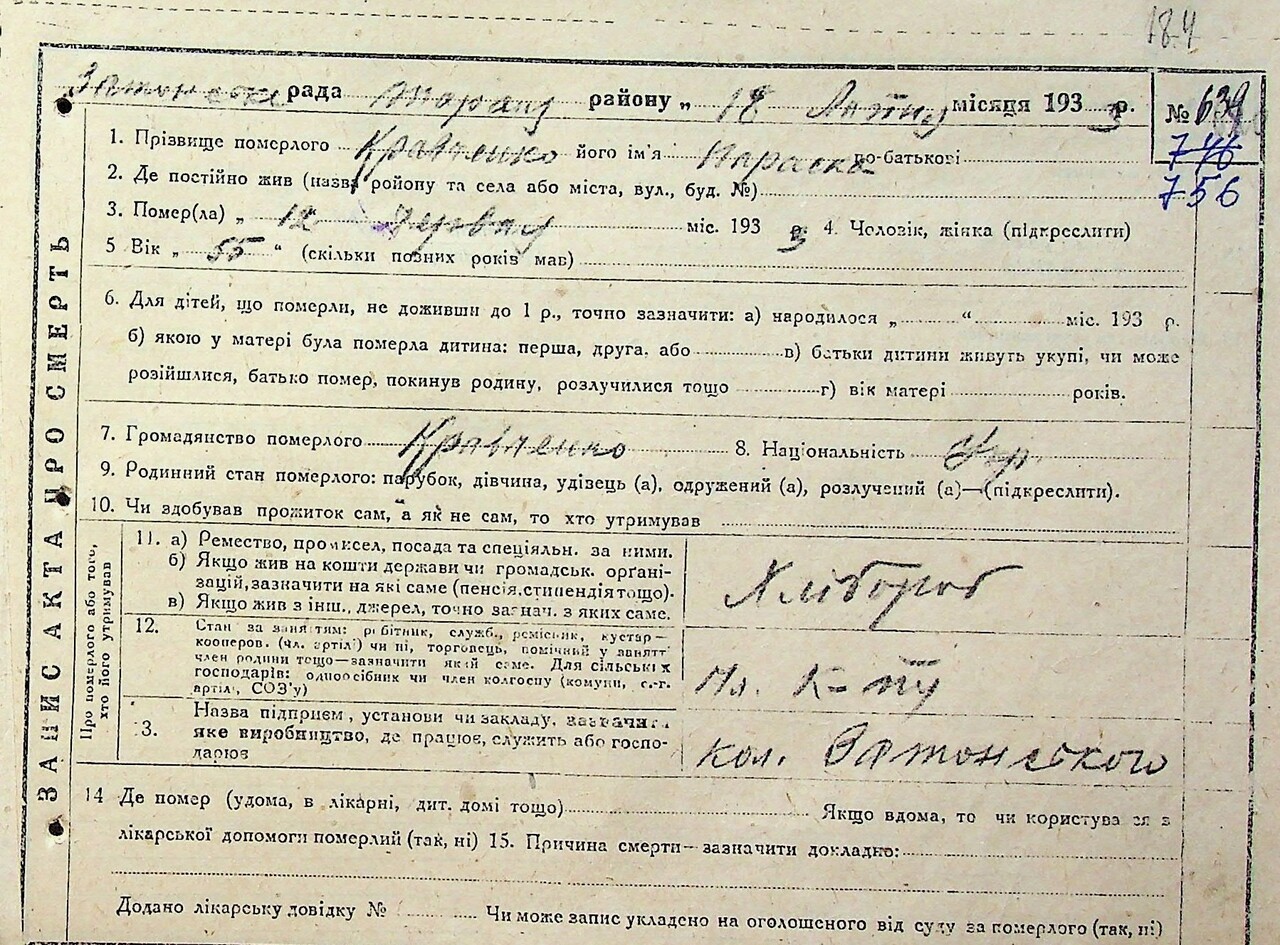 184
рада району „ 18 місяця 1933 р. № 639
746
756
1. Прізвище померлого Кравченко його ім'я Параска по-батькові
2. Де постійно жив (назва району та села або міста, вул., буд. №)
3. Помер(ла) „ 12 міс. 193 3 р. 4. Чоловік, жінка (підкреслити)
5 Вік „ 55 “ (скільки повних років мав)
6. Для дітей, що померли, не доживши до 1 р., точно зазначити: а) народилося „ “ міс. 193 р.
б) якою у матері була померла дитина: перша, друга, або в) батьки дитини живуть укупі, чи може
розійшлися, батько помер, покинув родину, розлучилися тощо г) вік матері років.
7. Громадянство померлого Кравченко 8. Національність Укр
9. Родинний стан померлого: парубок, дівчина, удівець (а), одружений (а), розлучений (а)—(підкреслити).
10. Чи здобував прожиток сам, а як не сам, то хто утримував
ЗАПИС АКТА ПРО СМЕРТЬ
Про померлого або того,
хто його утримував
11. а) Ремество, промисел, посада та спеціяльн. за ними.
б) Якщо жив на кошти держави чи громадськ. орґані-
зацій, зазначити на які саме (пенсія, стипендія тощо).
в) Якщо жив з інш., джерел, точно зазнач. з яких саме.
Хлібороб
12. Стан за заняттям: робітник, служб., ремісник, кустар—
кооперов. (чл. артілі) чи ні, торговець, помічний у занятт
член родини тощо—зазначити який саме. Для сільських
господарів: одноосібник чи член колгоспу (комуни, с.-г.
артілі, СОЗ'у)
Чл. К-ту
13. Назва підприєм., установи чи закладу, зазначити
яке виробництво, де працює, служить або госпо-
дарює
кол. Затонського
14 Де помер (удома, в лікарні, дит. домі тощо) Якщо вдома, то чи користувався з
лікарської допомоги померлий (так, ні) 15. Причина смерти—зазначити докладно:
Додано лікарську довідку № Чи може запис укладено на оголошеного від суду за померлого (так, ні)